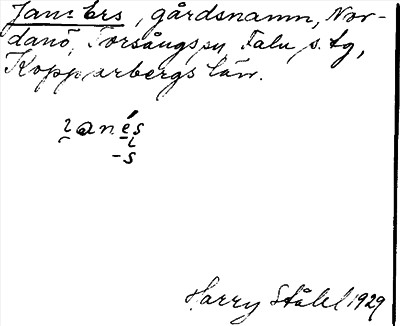 Jans Ers, gårdsnamn, Nor-
danö, Torsångs sn, Falu s. tg,
Kopparbergs län.
Harry Ståhl 1929